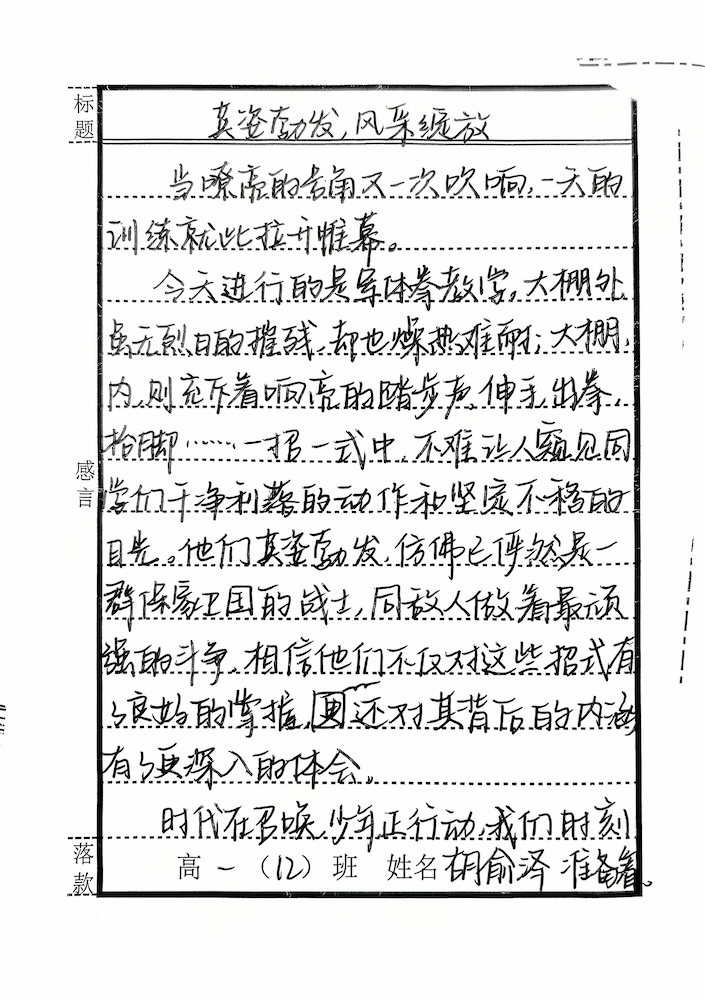 标题
英姿勃发,风采绽放
当嘹亮的号角又一次吹响,一天的
训练就此拉开帷幕。
今天进行的是军体拳教学。大棚外,
虽无烈日的摧残,却也燥热难耐;大棚
内,则充斥着响亮的踏步声。伸手,出拳,
抬脚……一招一式中,不难让人窥见同
感言
学们干净利落的动作和坚定不移的
目光。他们英姿勃发,仿佛已俨然是一
群保家卫国的战士,同敌人做着最顽
强的斗争。相信他们不仅对这些招式有
了良好的掌握,还对其背后的内涵
有了更深入的体会。
时代在召唤,少年正行动,我们时刻
准备着。
落款
高一(12)班 姓名 胡俞泽